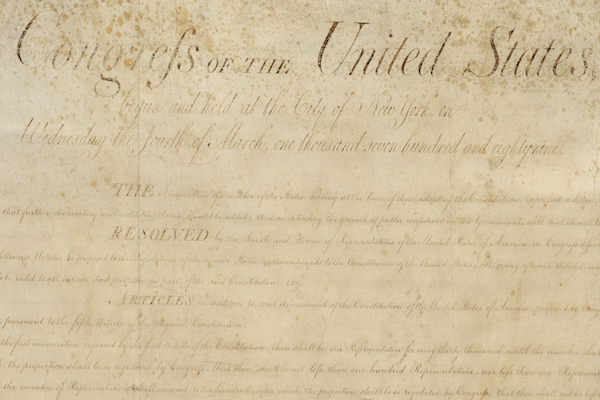 Congreſs OF THE United States,
begun and held at the City of New York, on
Wednesday the Fourth of March, one thousand seven hundred and eighty nine.
THE Conventions of a number of the States, having at the time of their adopting the Constitution, expressed a desire
that further declaratory and restrictive clauses should be added: And as extending the ground of public confidence in the Government, will best
RESOLVED by the Senate and House of Representatives of the United States of America, in Congress
following Articles be proposed to the Legislatures of the several States, as amendments to the Constitution of the United States, all, or any of which Articles,
to be valid to all intents and purposes, as part of the said Constitution; vizt
ARTICLES in addition to, and Amendment of the Constitution of the United States of America, proposed by
pursuant to the fifth Article of the original Constitution.
the first enumeration required by the first Article of the Constitution, there shall be one Representative for every thirty thousand, until the number shall
the proportion shall be so regulated by Congress, that there shall be not less than one hundred Representatives, nor less than one Representative
the number of Representatives shall amount to two hundred, after which the proportion shall be so regulated by Congress, that there shall not be less